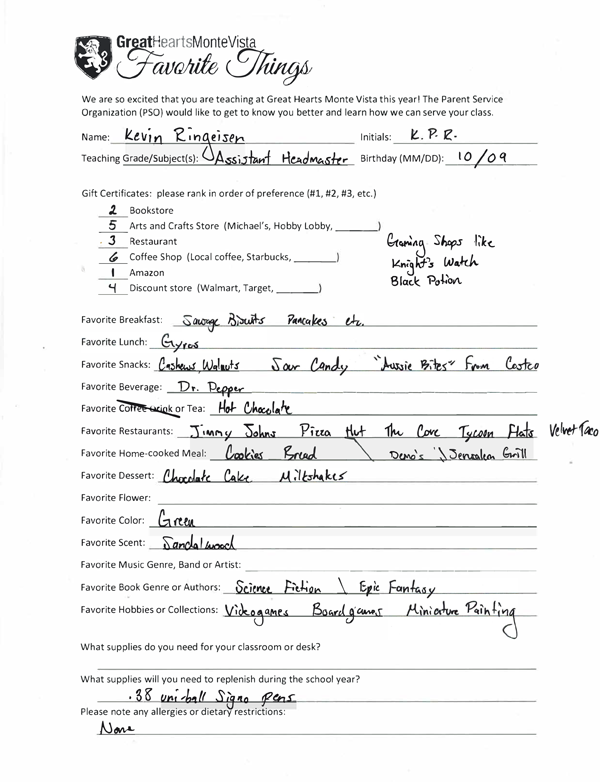 GreatHeartsMonteVista
Favorite Things
We are so excited that you are teaching at Great Hearts Monte Vista this year! The Parent Service
Organization (PSO) would like to get to know you better and learn how we can serve your class.
Name: Kevin Ringeisen Initials: K.P.R.
Teaching Grade/Subject(s): Assistant Headmaster Birthday (MM/DD): 10/09
Gift Certificates: please rank in order of preference (#1, #2, #3, etc.)
2 Bookstore
5 Arts and Crafts Store (Michael's, Hobby Lobby, ________)
3 Restaurant
6 Coffee Shop (Local coffee, Starbucks, ________)
1 Amazon
4 Discount store (Walmart, Target, ________)
Gaming Shops like
Knight's Watch
Black Potion
Favorite Breakfast: Sausage Biscuits Pancakes etc.
Favorite Lunch: Gyros
Favorite Snacks: Cashews, Walnuts Sour Candy "Aussie Bites" From Costco
Favorite Beverage: Dr. Pepper
Favorite Coffee drink or Tea: Hot Chocolate
Favorite Restaurants: Jimmy Johns Pizza Hut The Cove Tycoon Flats Velvet Taco
Favorite Home-cooked Meal: Cookies Bread \ Demo's \ Jerusalem Grill
Favorite Dessert: Chocolate Cake Milkshakes
Favorite Flower:
Favorite Color: Green
Favorite Scent: Sandalwood
Favorite Music Genre, Band or Artist:
Favorite Book Genre or Authors: Science Fiction \ Epic Fantasy
Favorite Hobbies or Collections: Videogames Boardgames Miniature Painting
What supplies do you need for your classroom or desk?
What supplies will you need to replenish during the school year?
.38 uni-ball Signo pens
Please note any allergies or dietary restrictions:
None